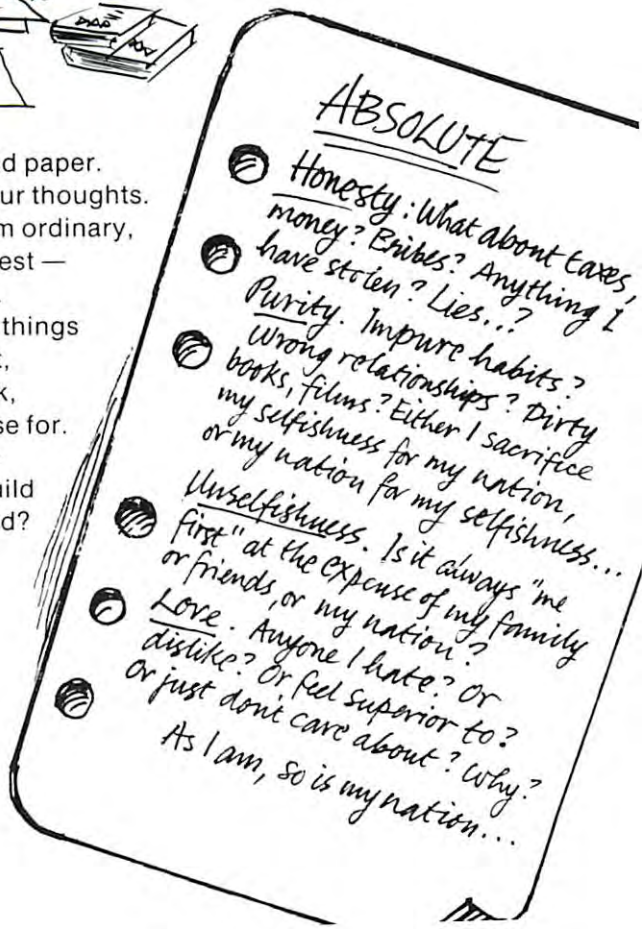 d paper.
ur thoughts.
m ordinary,
est —
things
t,
k,
se for.
ild
d?
ABSOLUTE
Honesty: What about taxes,
money? Bribes? Anything I
have stolen? Lies...?
Purity. Impure habits?
Wrong relationships? Dirty
books, films? Either I sacrifice
my selfishness for my nation,
or my nation for my selfishness...
Unselfishness. Is it always "me
first" at the expense of my family
or friends, or my nation?
Love. Anyone I hate? Or
dislike? Or feel superior to?
Or just don't care about? Why?
As I am, so is my nation...